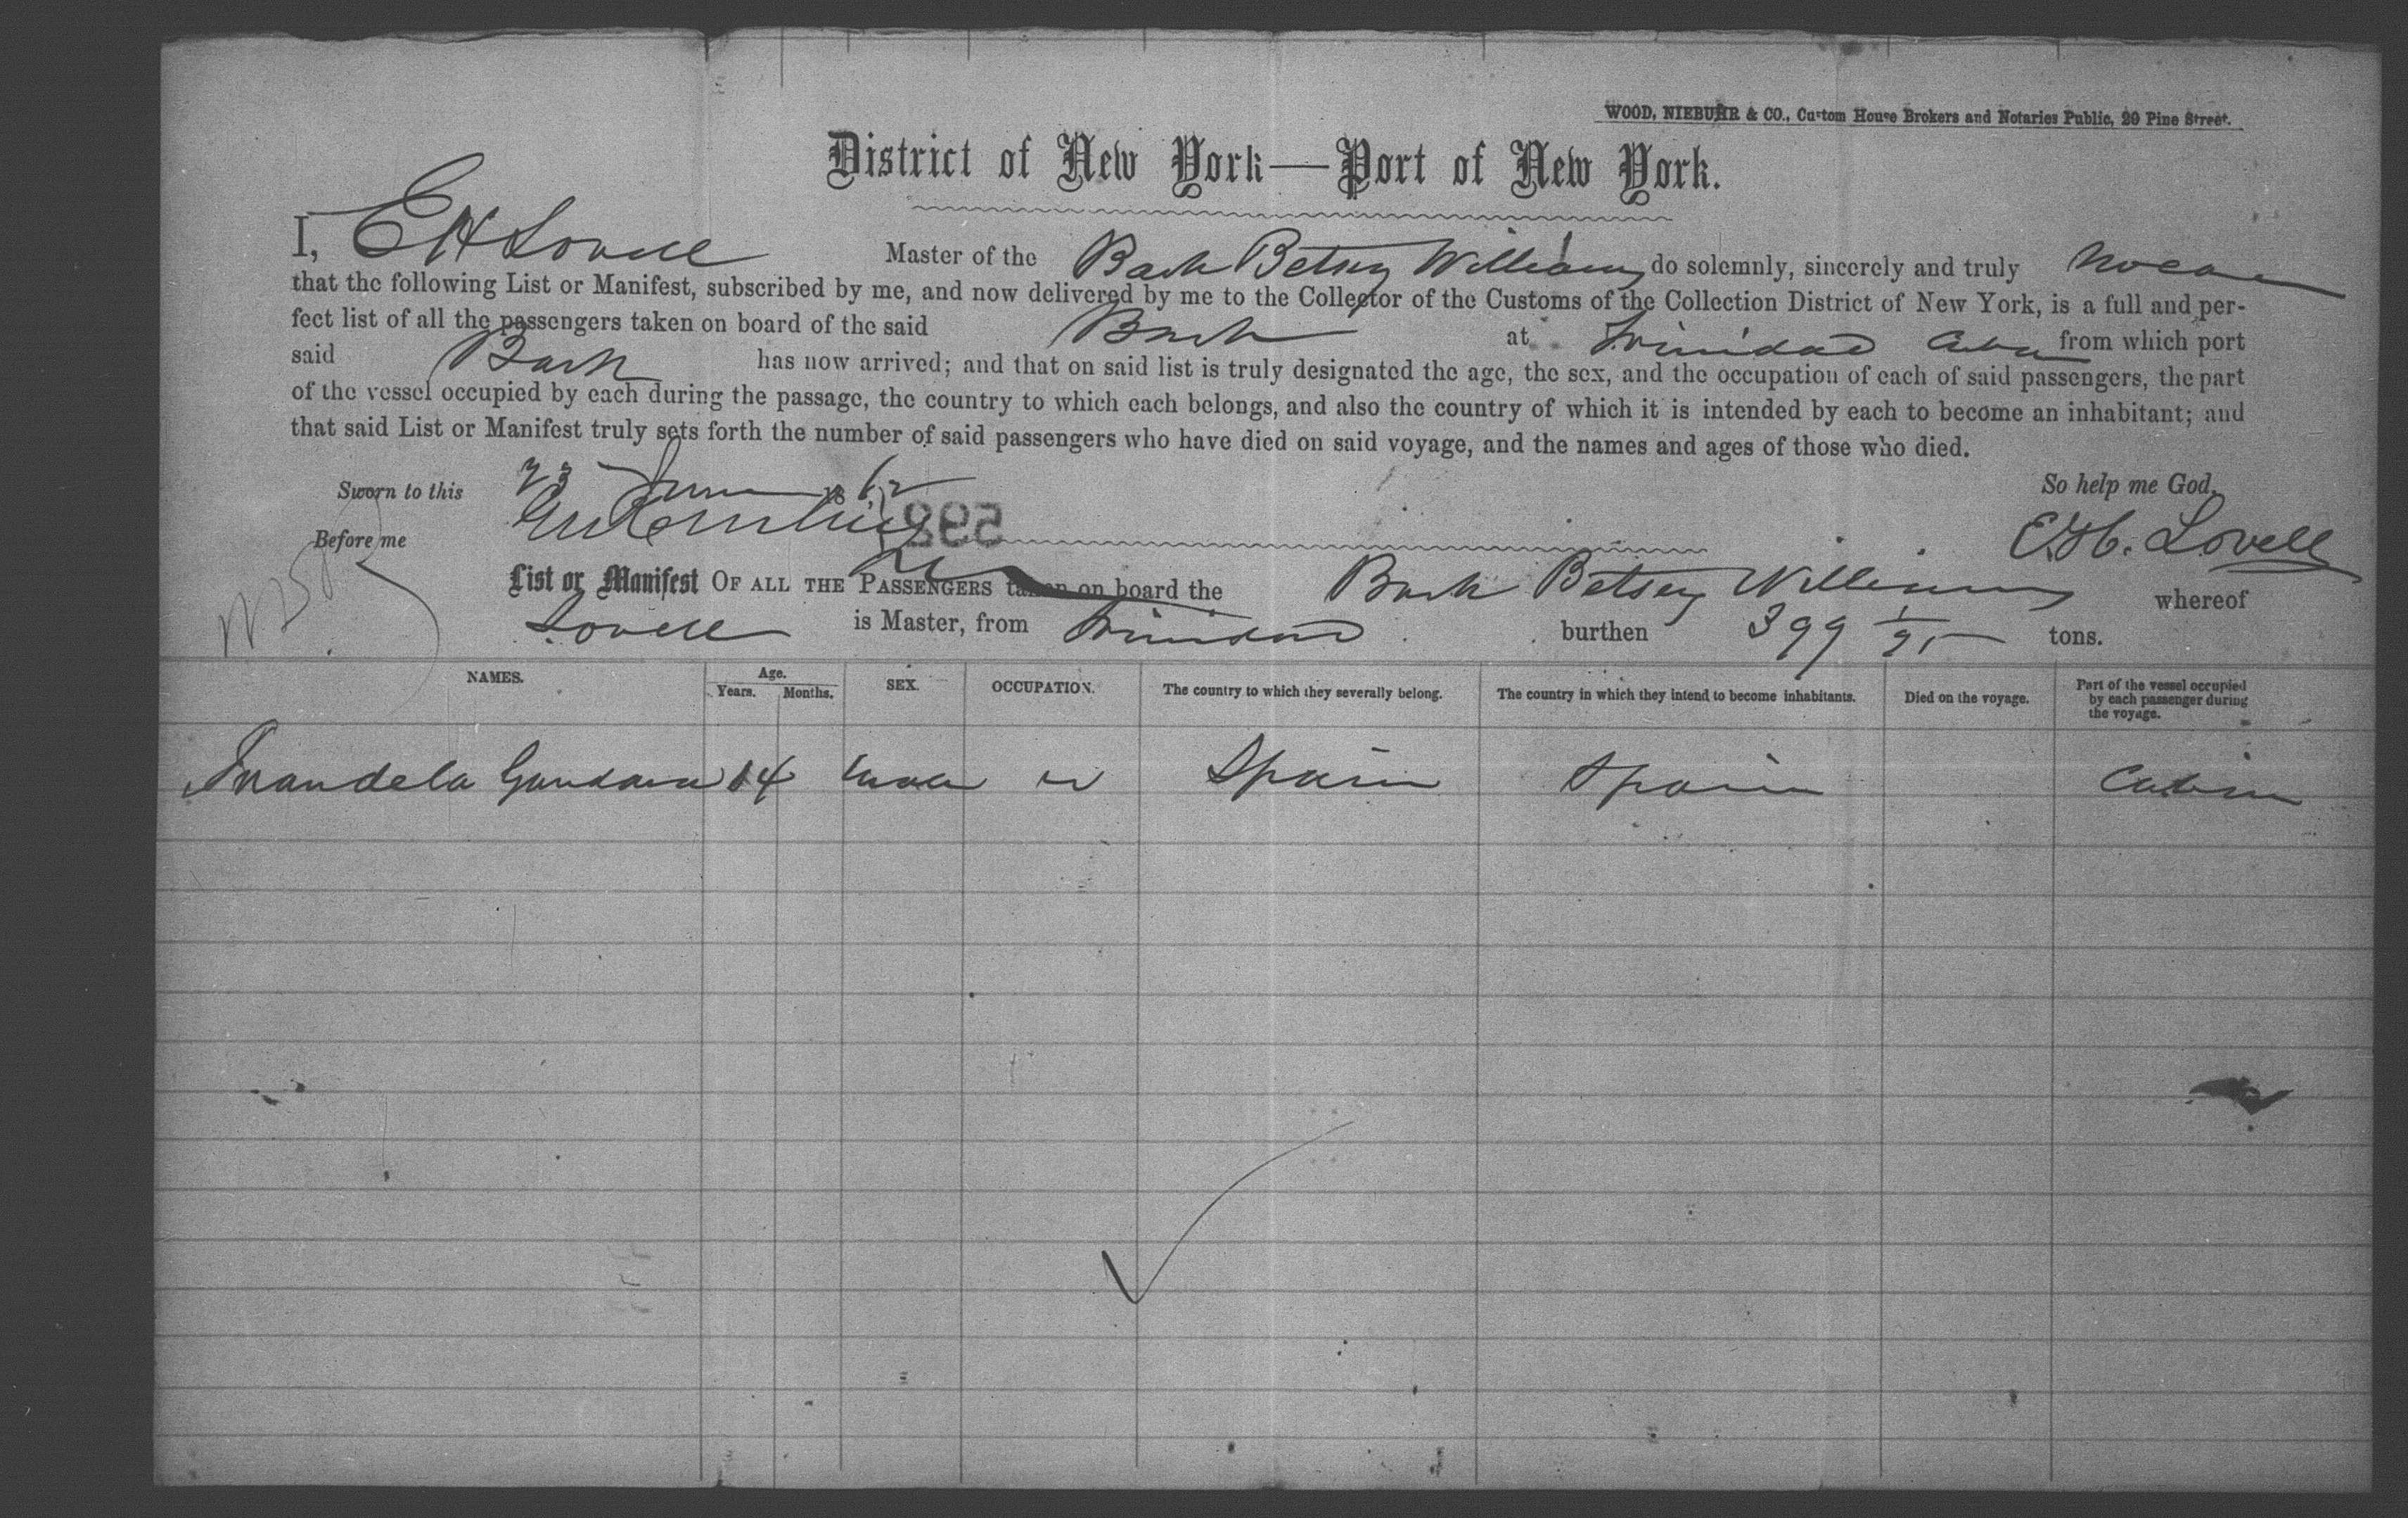 WOOD, NIEBUHR & CO., Custom House Brokers and Notaries Public, 20 Pine Street.
District of New York—Port of New York.
I, E H Lovell Master of the Bark Betsey Williams do solemnly, sincerely and truly swear
that the following List or Manifest, subscribed by me, and now delivered by me to the Collector of the Customs of the Collection District of New York, is a full and per-
fect list of all the passengers taken on board of the said Bark at Trinidad Cuba from which port
said Bark has now arrived; and that on said list is truly designated the age, the sex, and the occupation of each of said passengers, the part
of the vessel occupied by each during the passage, the country to which each belongs, and also the country of which it is intended by each to become an inhabitant; and
that said List or Manifest truly sets forth the number of said passengers who have died on said voyage, and the names and ages of those who died.
Sworn to this 23 June 1862 So help me God,
Before me 592 E. H. Lovell
List or Manifest OF ALL THE PASSENGERS taken on board the Bark Betsey Williams whereof
Lovell is Master, from Trinidad burthen 399 1/95 tons.
NAMES. Age. Years. Months. SEX. OCCUPATION. The country to which they severally belong. The country in which they intend to become inhabitants. Died on the voyage. Part of the vessel occupied by each passenger during the voyage.
14 male Spain Spain Cabin